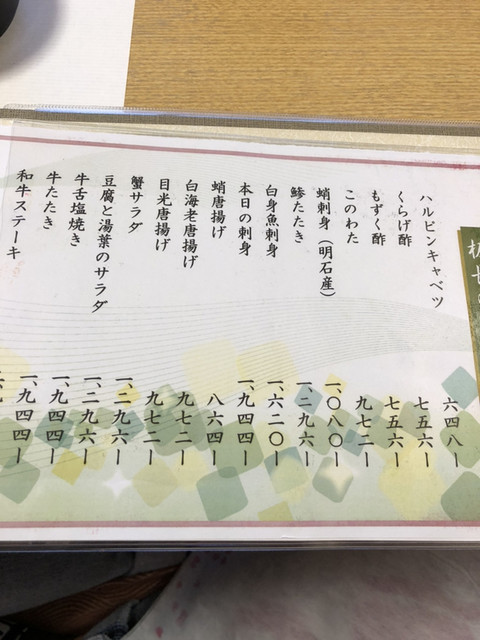 ハルピンキャベツ 六四八ー
くらげ酢 七五六ー
もずく酢 七五六ー
このわた 九七二ー
蛸刺身（明石産） 一、〇八〇ー
鯵たたき 一、二九六ー
白身魚刺身 一、六二〇ー
本日の刺身 一、九四四ー
蛸唐揚げ 八六四ー
白海老唐揚げ 九七二ー
目光唐揚げ 九七二ー
蟹サラダ 一、二九六ー
豆腐と湯葉のサラダ 一、二九六ー
牛舌塩焼き 一、九四四ー
牛たたき 一、九四四ー
和牛ステーキ